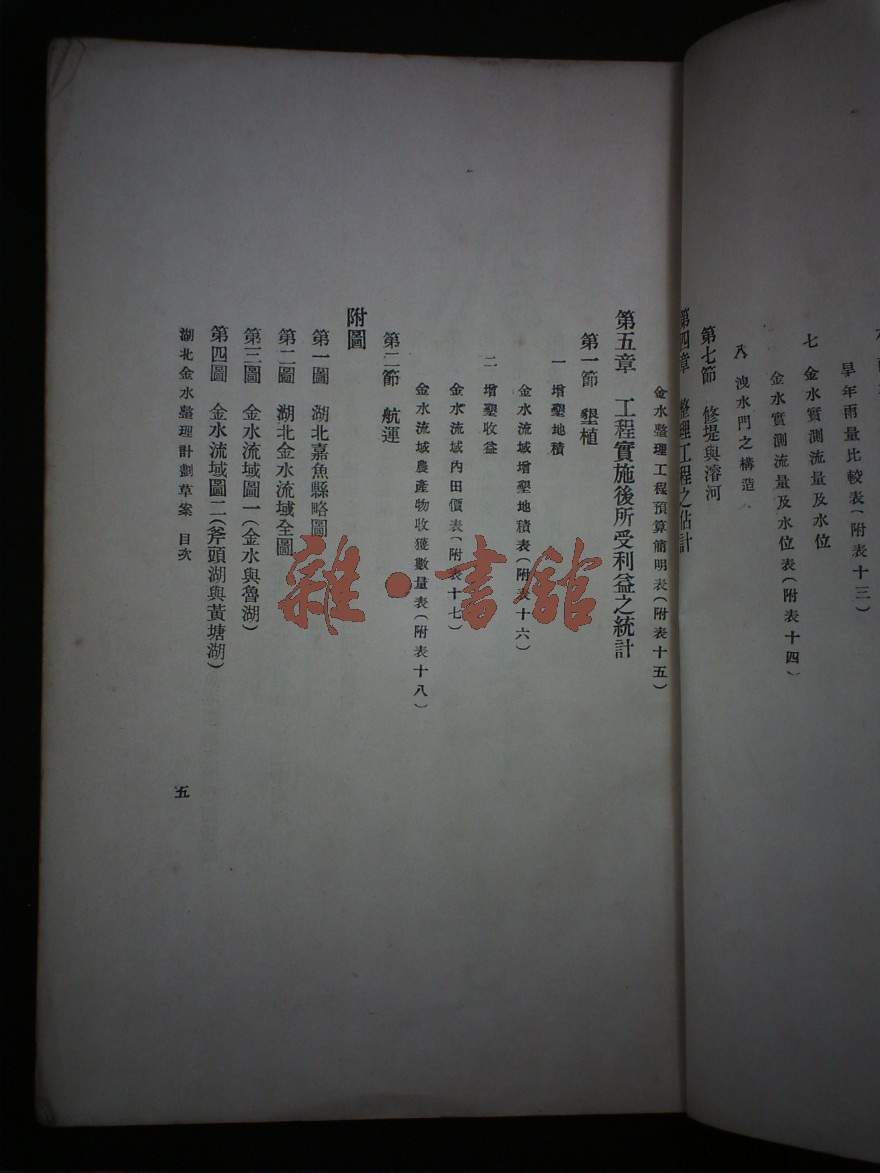 旱年雨量比較表(附表十三)
七 金水實測流量及水位
金水實測流量及水位表(附表十四)
八 洩水門之構造
第七節 修堤與濬河
第四章 整理工程之估計
金水整理工程預算簡明表(附表十五)
第五章 工程實施後所受利益之統計
第一節 墾植
一 增墾地積
金水流域增墾地積表(附表十六)
二 增墾收益
金水流域內田價表(附表十七)
金水流域農產物收獲數量表(附表十八)
第二節 航運
附圖
第一圖 湖北嘉魚縣略圖
第二圖 湖北金水流域全圖
第三圖 金水流域圖一(金水與魯湖)
第四圖 金水流域圖二(斧頭湖與黃塘湖)
湖北金水整理計劃草案 目次
五
雜·書館